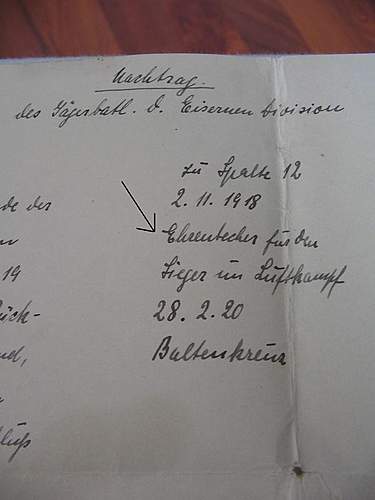 Nachtrag.
des Jägerbatl. d. Eisernen Division
zu Spalte 12
2. 11. 1918
Ehrenbecher für den
Sieger im Luftkampf
28. 2. 20
Baltenkreuz
de der
19
ück-
nd,
luß